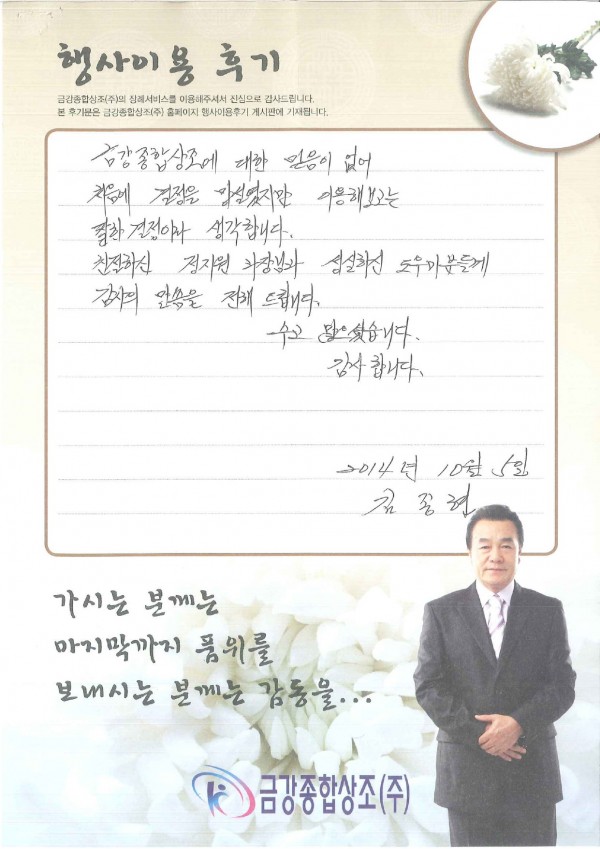 행사이용 후기
금강종합상조(주)의 장례서비스를 이용해주셔서 진심으로 감사드립니다.
본 후기문은 금강종합상조(주) 홈페이지 행사이용후기 게시판에 기재됩니다.
금강종합상조에 대한 믿음이 없어
처음에 결정을 망설였지만 이용해보고는
잘한 결정이라 생각합니다.
친절하신 정지원 과장님과 성실하신 도우미분들께
감사의 말씀을 전해 드립니다.
수고 많으셨습니다.
감사합니다.
2014년 10월 5일
김종현
가시는 분께는
마지막까지 품위를
보내시는 분께는 감동을...
금강종합상조(주)